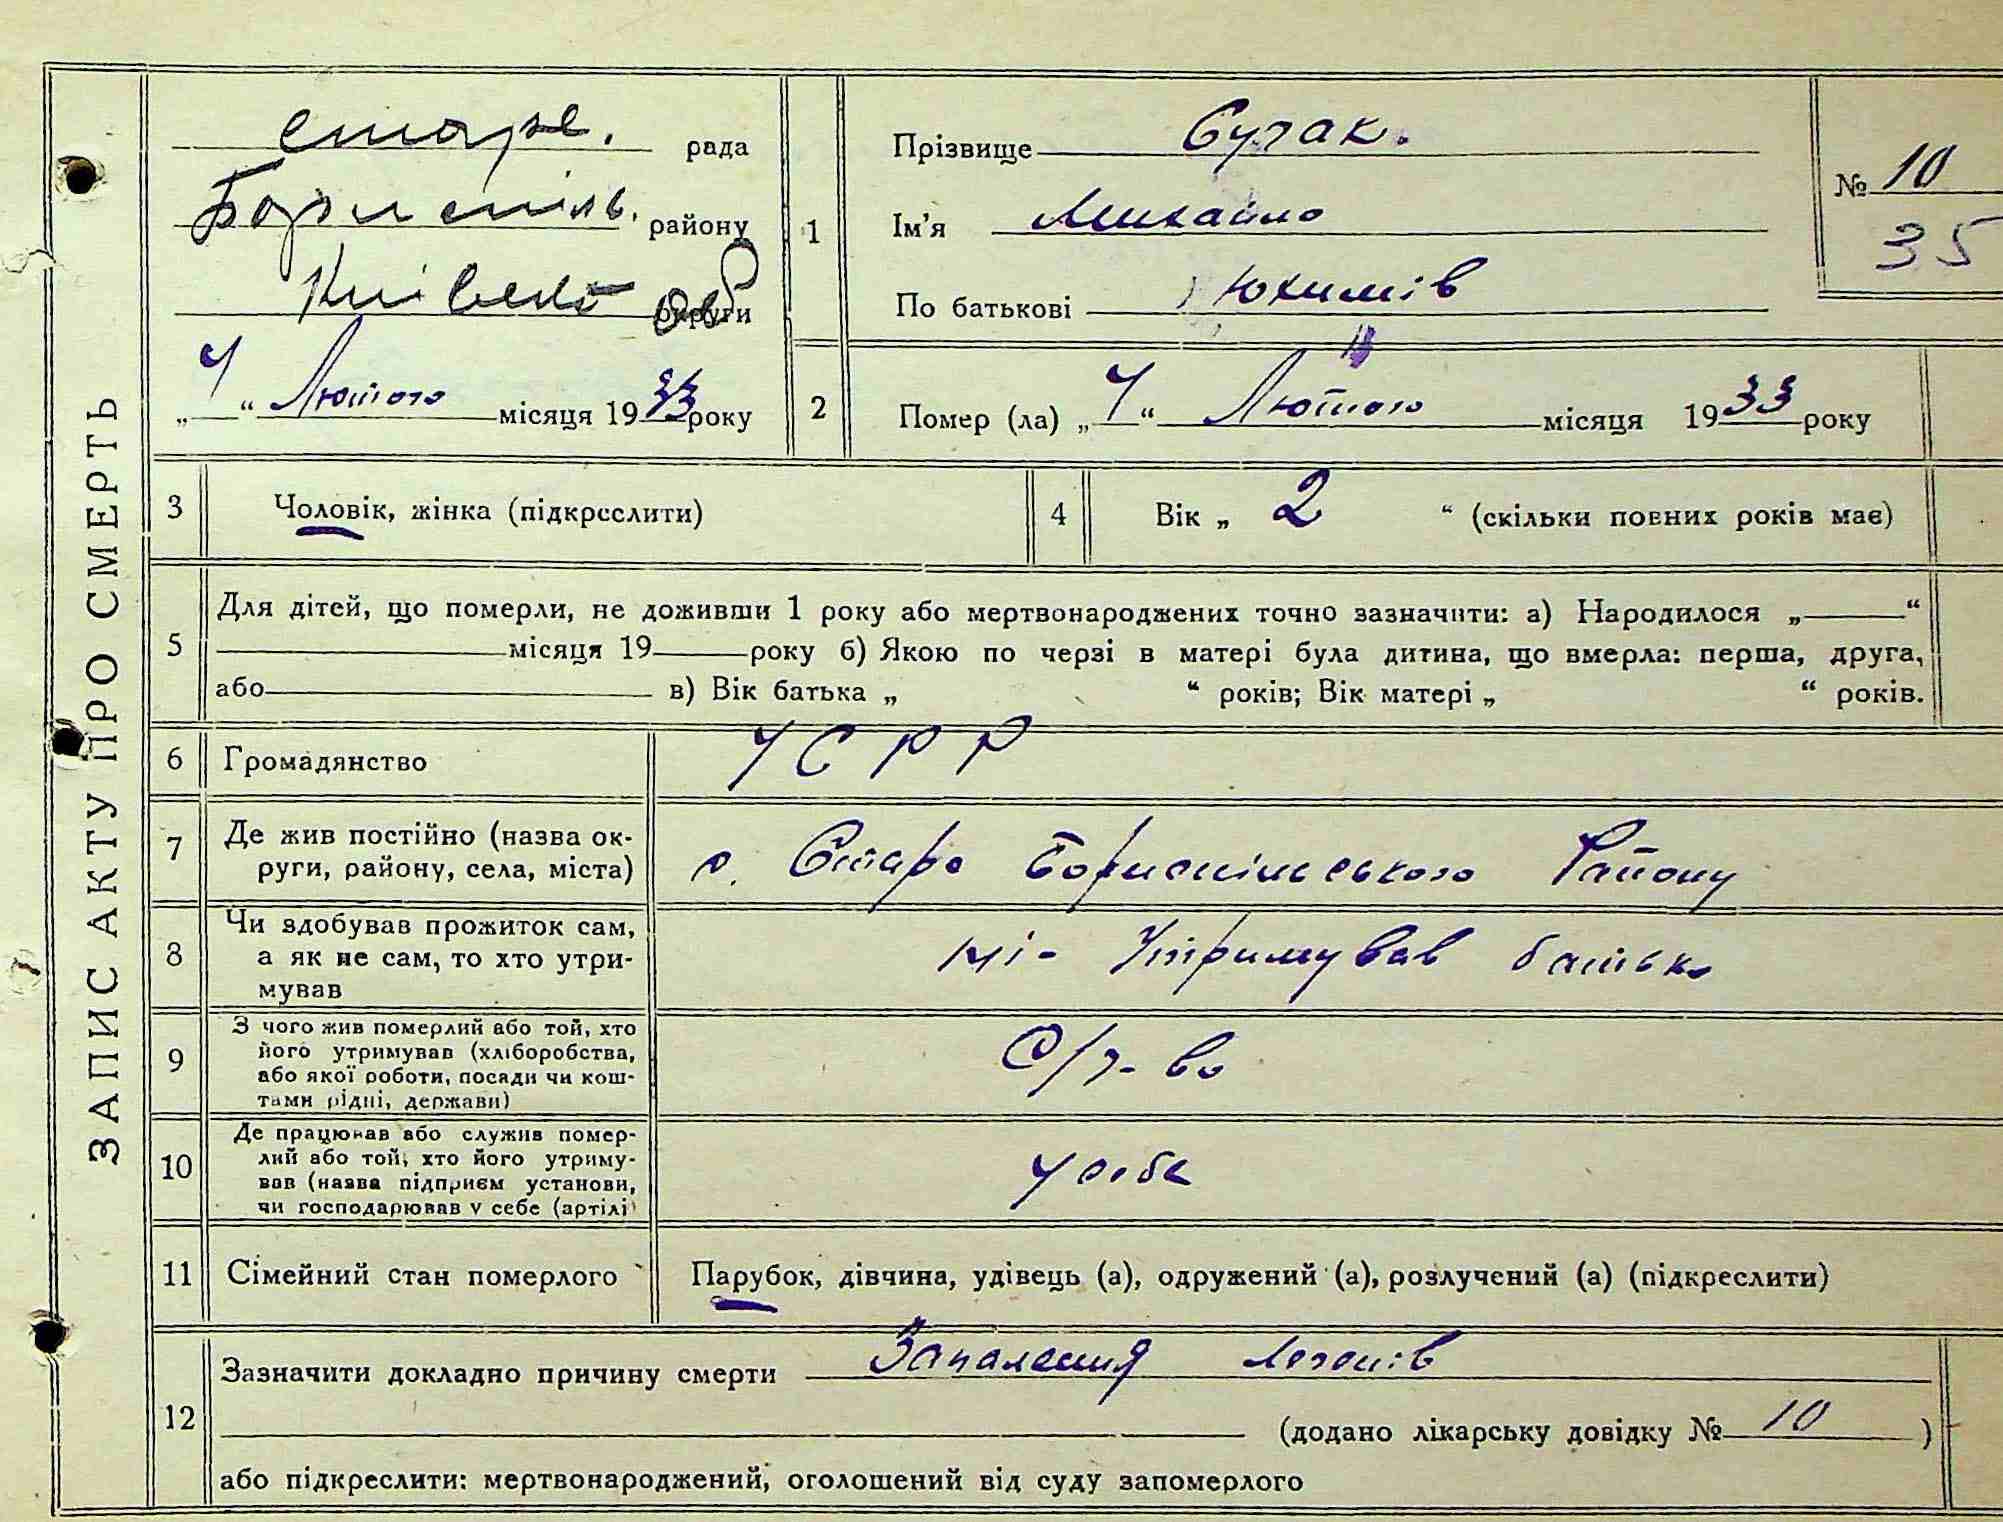 ЗАПИС АКТУ ПРО СМЕРТЬ
старе. рада
Бориспіль. району
Київско Об округи
„ 4 “ Лютого місяця 1933 року
1
Прізвище Сугак.
Ім'я Михайло
По батькові Юхимів
№ 10
35
2
Помер (ла) „ 4 “ Лютого місяця 1933 року
3 Чоловік, жінка (підкреслити)
4 Вік „ 2 “ (скільки повних років має)
5 Для дітей, що померли, не доживши 1 року або мертвонароджених точно зазначити: а) Народилося „ “
місяця 19 року б) Якою по черзі в матері була дитина, що вмерла: перша, друга,
або в) Вік батька „ “ років; Вік матері „ “ років.
6 Громадянство УСРР
7 Де жив постійно (назва ок-
руги, району, села, міста) с. Старе Бориспільського Району
8 Чи здобував прожиток сам,
а як не сам, то хто утри-
мував
ні- Утримував батько
9 З чого жив померлий або той, хто
його утримував (хліборобства,
або якої роботи, посади чи кош-
тами рідні, держави)
С/г-во
10 Де працював або служив помер-
лий або той, хто його утриму-
вав (назва підприєм установи,
чи господарював у себе (артілі)
у себе
11 Сімейний стан померлого Парубок, дівчина, удівець (а), одружений (а), розлучений (а) (підкреслити)
12 Зазначити докладно причину смерти Запалення легенів
(додано лікарську довідку № 10 )
або підкреслити: мертвонароджений, оголошений від суду запомерлого